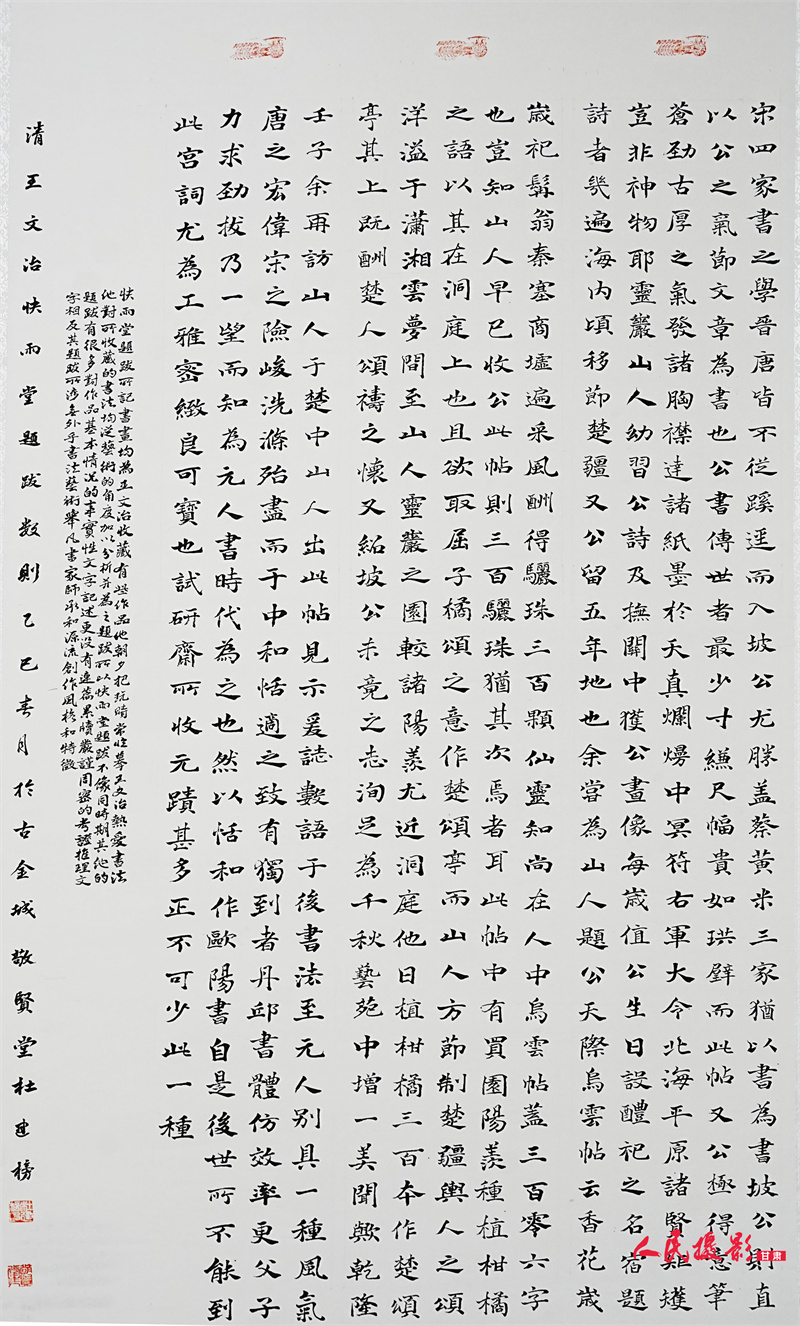 宋四家書之學晉唐皆不從蹊逕而入坡公尤勝蓋蔡黃米三家猶以書為書坡公則直
以公之氣節文章為書也公書傳世者最少寸縑尺幅貴如珙璧而此帖又公極得意筆
蒼勁古厚之氣發諸胸襟達諸紙墨於天真爛熳中冥符右軍大令北海平原諸賢矩矱
豈非神物耶靈巖山人幼習公詩及撫關中獲公畫像每歲值公生日設醴祀之名宿題
詩者幾遍海內頃移節楚疆又公留五年地也余嘗為山人題公天際烏雲帖云香花歲
歲祀髯翁秦塞商墟遍采風酬得驪珠三百顆仙靈知尚在人中烏雲帖蓋三百零六字
也豈知山人早已收公此帖則三百驪珠猶其次焉者耳此帖中有買園陽羨種植柑橘
之語以其在洞庭上也且欲取屈子橘頌之意作楚頌亭而山人方節制楚疆輿人之頌
洋溢于瀟湘雲夢間至山人靈巖之園較諸陽羨尤近洞庭他日植柑橘三百本作楚頌
亭其上既酬楚人頌禱之懷又紹坡公未竟之志洵足為千秋藝苑中增一美聞歟乾隆
壬子余再訪山人于楚中山人出此帖見示爰誌數語于後書法至元人別具一種風氣
唐之宏偉宋之險峻洗滌殆盡而于中和恬適之致有獨到者丹邱書體仿效率更父子
力求勁拔乃一望而知為元人書時代為之也然以恬和作歐陽書自是後世所不能到
此宮詞尤為工雅密緻良可寶也試研齋所收元蹟甚多正不可少此一種
快雨堂題跋所記書畫均為王文治收藏有些作品他朝夕把玩時常臨摹王文治熱愛書法
他對所收藏的書法均從藝術的角度加以分析并為之題跋所以快雨堂題跋不像同時期其他的
題跋有很多對作品基本情況的事實性文字記述更沒有連篇累牘嚴謹周密的考證推理文
字相反其題跋所涉無外乎書法藝術舉凡書家師承和源流創作風格和特徵
清王文治快雨堂題跋數則乙巳春月於古金城敬賢堂杜建榜
人民攝影 甘肃